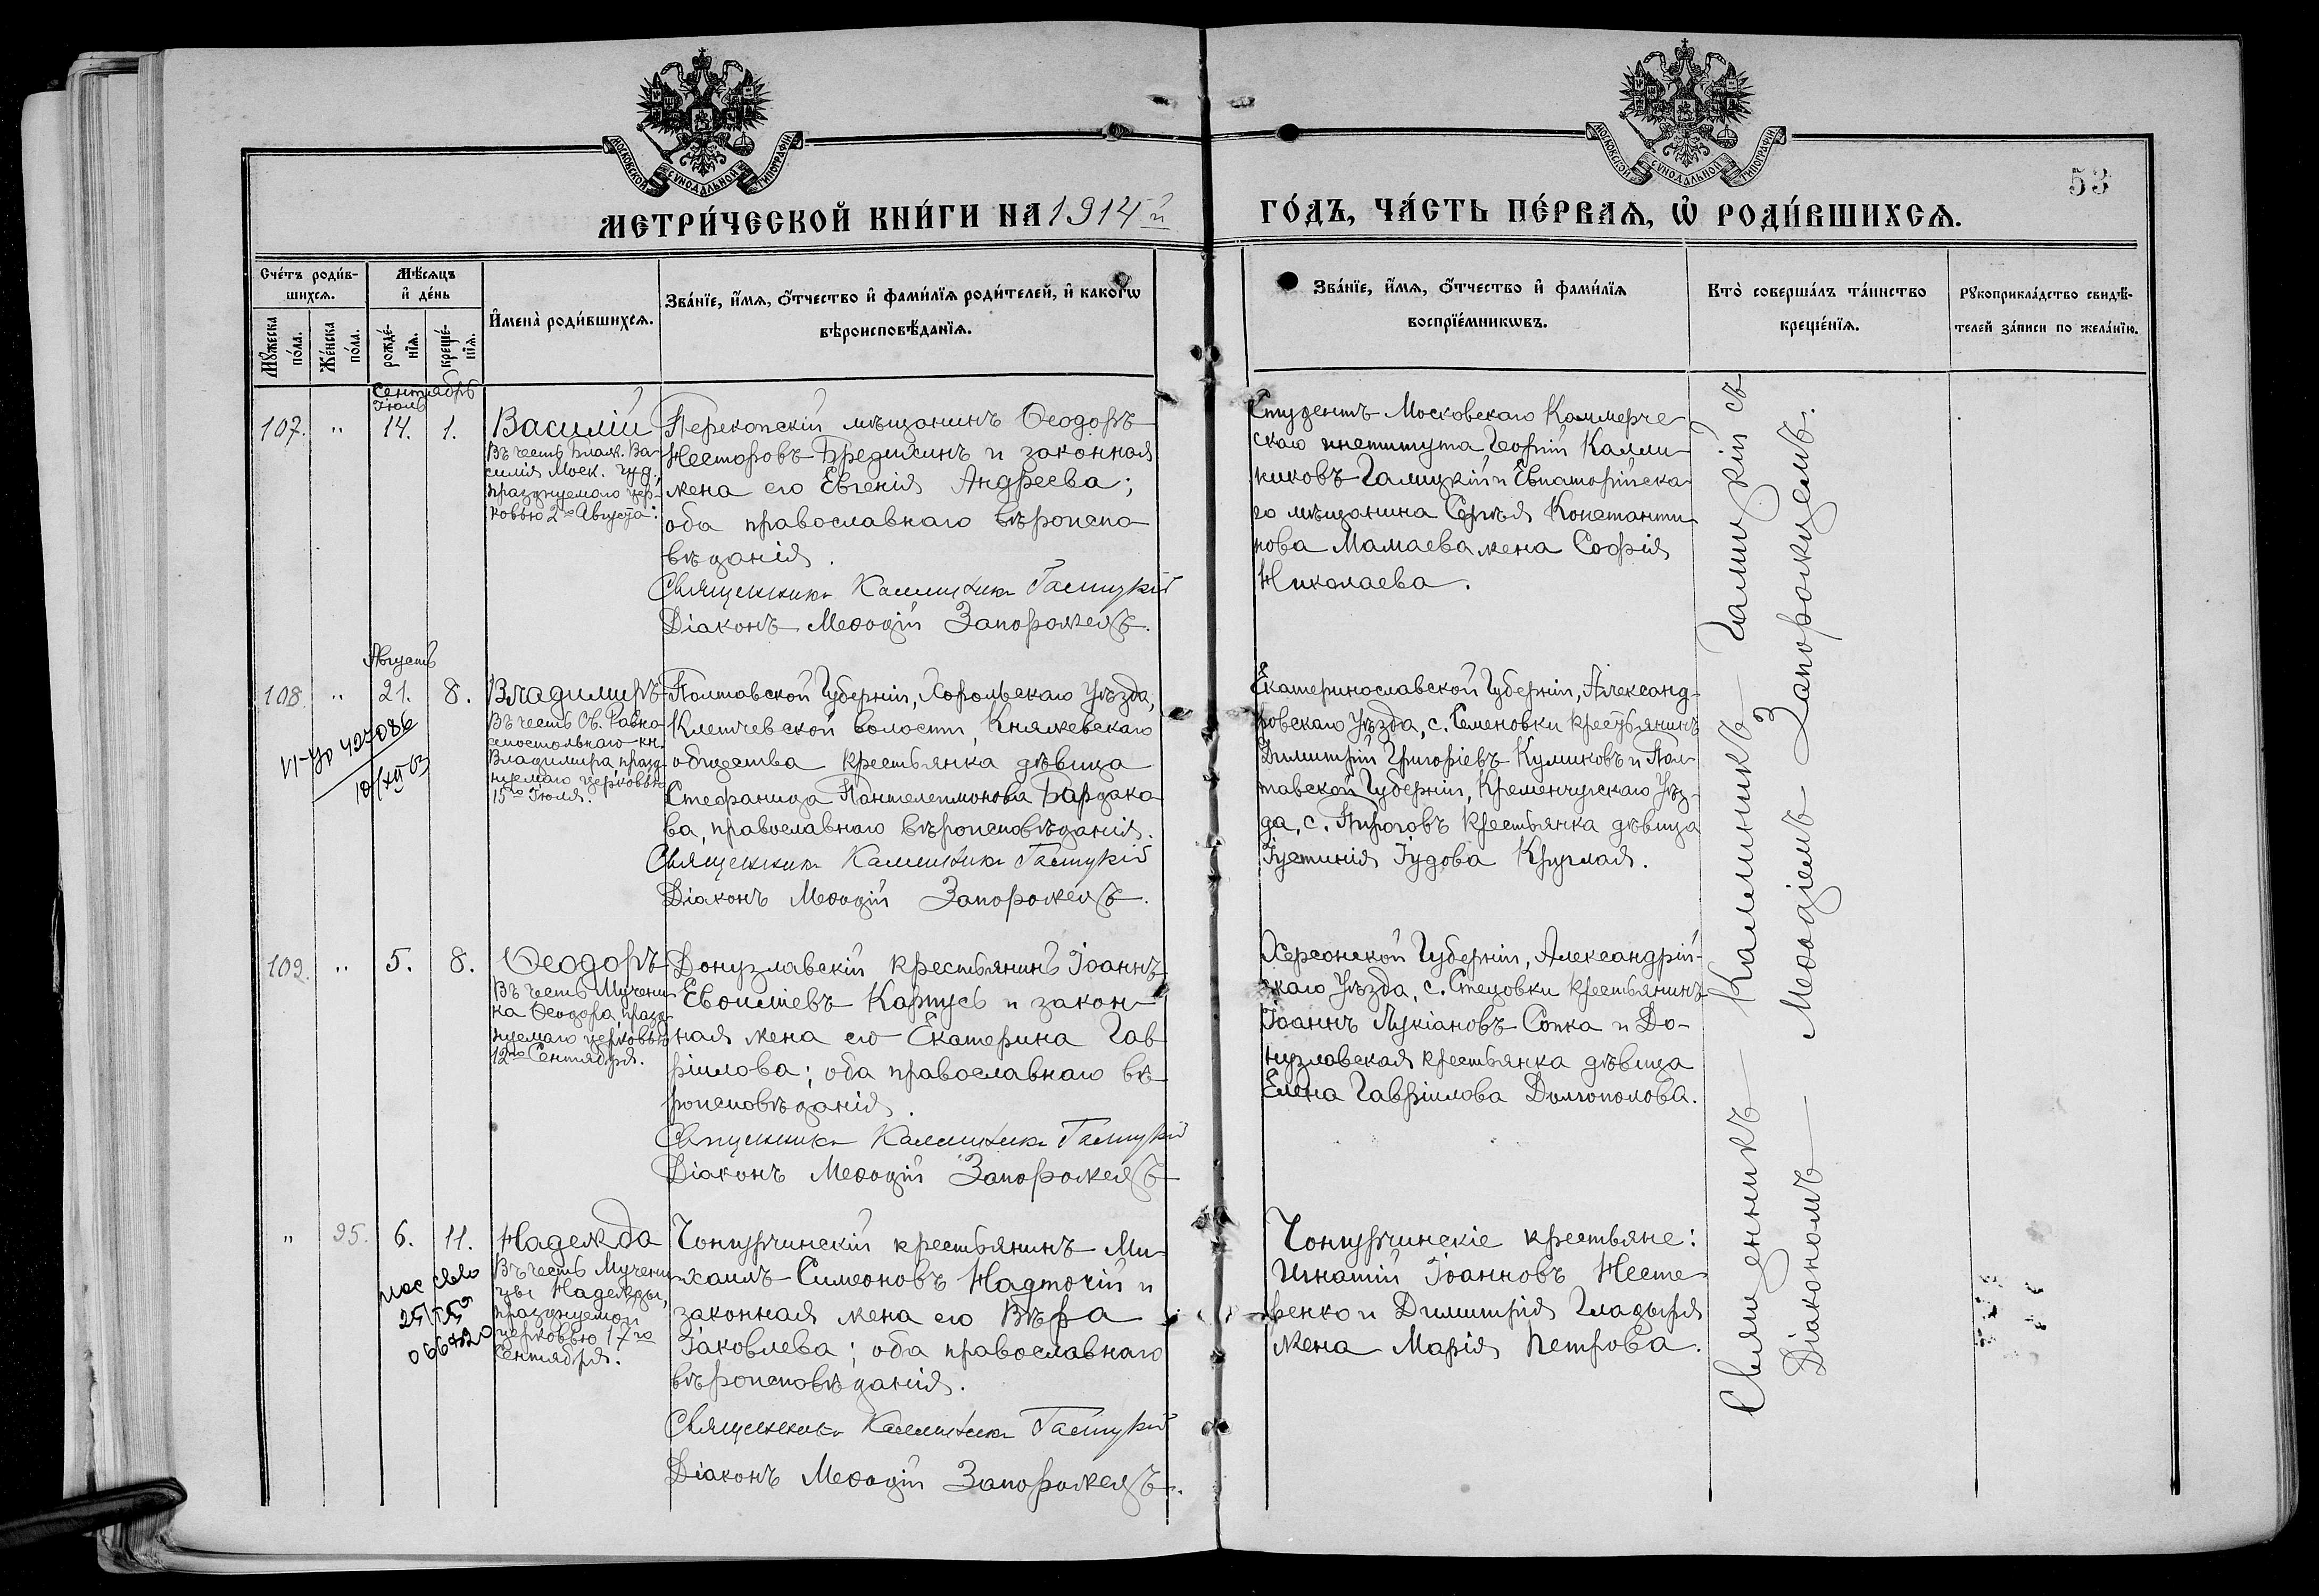 МОСКОВСКОЙ СѴНОДАЛЬНОЙ ТИПОГРАФІИ
МОСКОВСКОЙ СѴНОДАЛЬНОЙ ТИПОГРАФІИ
53
МЕТРИ́ЧЕСКОЙ КНИ́ГИ НА 1914й
ГО́ДЪ, ЧА́СТЬ ПЕ́РВАѦ, Ѡ҆ РОДИ́ВШИХСѦ.
Сче́тъ роди́в-
шихсѧ.
Мꙋ́жеска
по́ла.
Же́нска
по́ла.
Мѣ́сѧцъ
и҆ де́нь
рожде́-
нїѧ.
креще́-
нїѧ.
И҆мена̀ роди́вшихсѧ.
Зва́нїе, и҆́мѧ, ѻ҆́тчество и҆ фами́лїѧ роди́телей, и҆ како́гѡ
вѣроисповѣ́данїѧ.
Зва́нїе, и҆́мѧ, ѻ҆́тчество и҆ фами́лїѧ
воспрїе́мникѡвъ.
Кто̀ соверша́лъ та́инство
креще́нїѧ.
Рꙋкоприкла́дство свидѣ́-
телей за́писи по жела́нїю.
Сентябрь
Іюль
107. " 14. 1.
Василій
Въ честь Блаж. Ва-
силія Моск. чуд.,
празднуемаго цер-
ковью 2го Августа.
Перекопскій мѣщанинъ Ѳеодоръ
Несторовъ Бредихинъ и законная
жена его Евгенія Андреева;
оба православнаго вѣроиспо-
вѣданія.
Священникъ Каллиникъ Галицкій
Діаконъ Меѳодій Запорожецъ.
Студентъ Московскаго Коммерче-
скаго института Георгій Калли-
никовъ Галицкій и Евпаторійска-
го мѣщанина Сергѣя Константи-
нова Мамаева жена Софія
Николаева.
Августъ
108. " 21. 8.
VI-УР 427086
10/XII 63
Владиміръ
Въ честь Св. Равно-
апостольнаго кн.
Владиміра, празд-
нуемаго церковью
15го Іюля.
Полтавской Губерніи, Хорольскаго Уѣзда,
волости, Княжевскаго
общества крестьянка дѣвица
Стефанида Пантелеимонова Бардако-
ва, православнаго вѣроисповѣданія.
Священникъ Каллиникъ Галицкій
Діаконъ Меѳодій Запорожецъ.
Екатеринославской Губерніи, Александ-
ровскаго Уѣзда, с. Семеновки крестьянинъ
Димитрій Григоріевъ Куликовъ и Пол-
тавской Губерніи, Кременчугскаго Уѣз-
да, с. Пироговъ крестьянка дѣвица
Іустинія Іудова
109. " 5. 8.
Ѳеодоръ
Въ честь Мучени-
ка Ѳеодора, празд-
нуемаго церковью
12го Сентября.
Донузлавскій крестьянинъ Іоаннъ
Евѳиміевъ Карпусь и закон-
ная жена его Екатерина Гав-
ріилова; оба православнаго вѣ-
роисповѣданія.
Священникъ Каллиникъ Галицкій
Діаконъ Меѳодій Запорожецъ
Херсонской Губерніи, Александрій-
скаго Уѣзда, с. Стецовки крестьянинъ
Іоаннъ Лукіановъ Сопка и До-
нузлавская крестьянка дѣвица
Елена Гавріилова Долгополова.
" 95. 6. 11.
Надежда
Въ честь Мучени-
цы Надежды,
празднуемой
церковью 17го
Сентября.
Чонгурчинскій крестьянинъ Ми-
хаилъ Симеоновъ Надточій и
законная жена его Вѣра
Іаковлева; оба православнаго
вѣроисповѣданія.
Священникъ Каллиникъ Галицкій
Діаконъ Меѳодій Запорожецъ.
Чонгурчинскіе крестьяне:
Игнатій Іоанновъ Несте-
ренко и Димитрія Гладыря
жена Марія Петрова.
Священникъ Каллиникъ Галицкій съ
Діакономъ Меѳодіемъ Запорожцемъ.